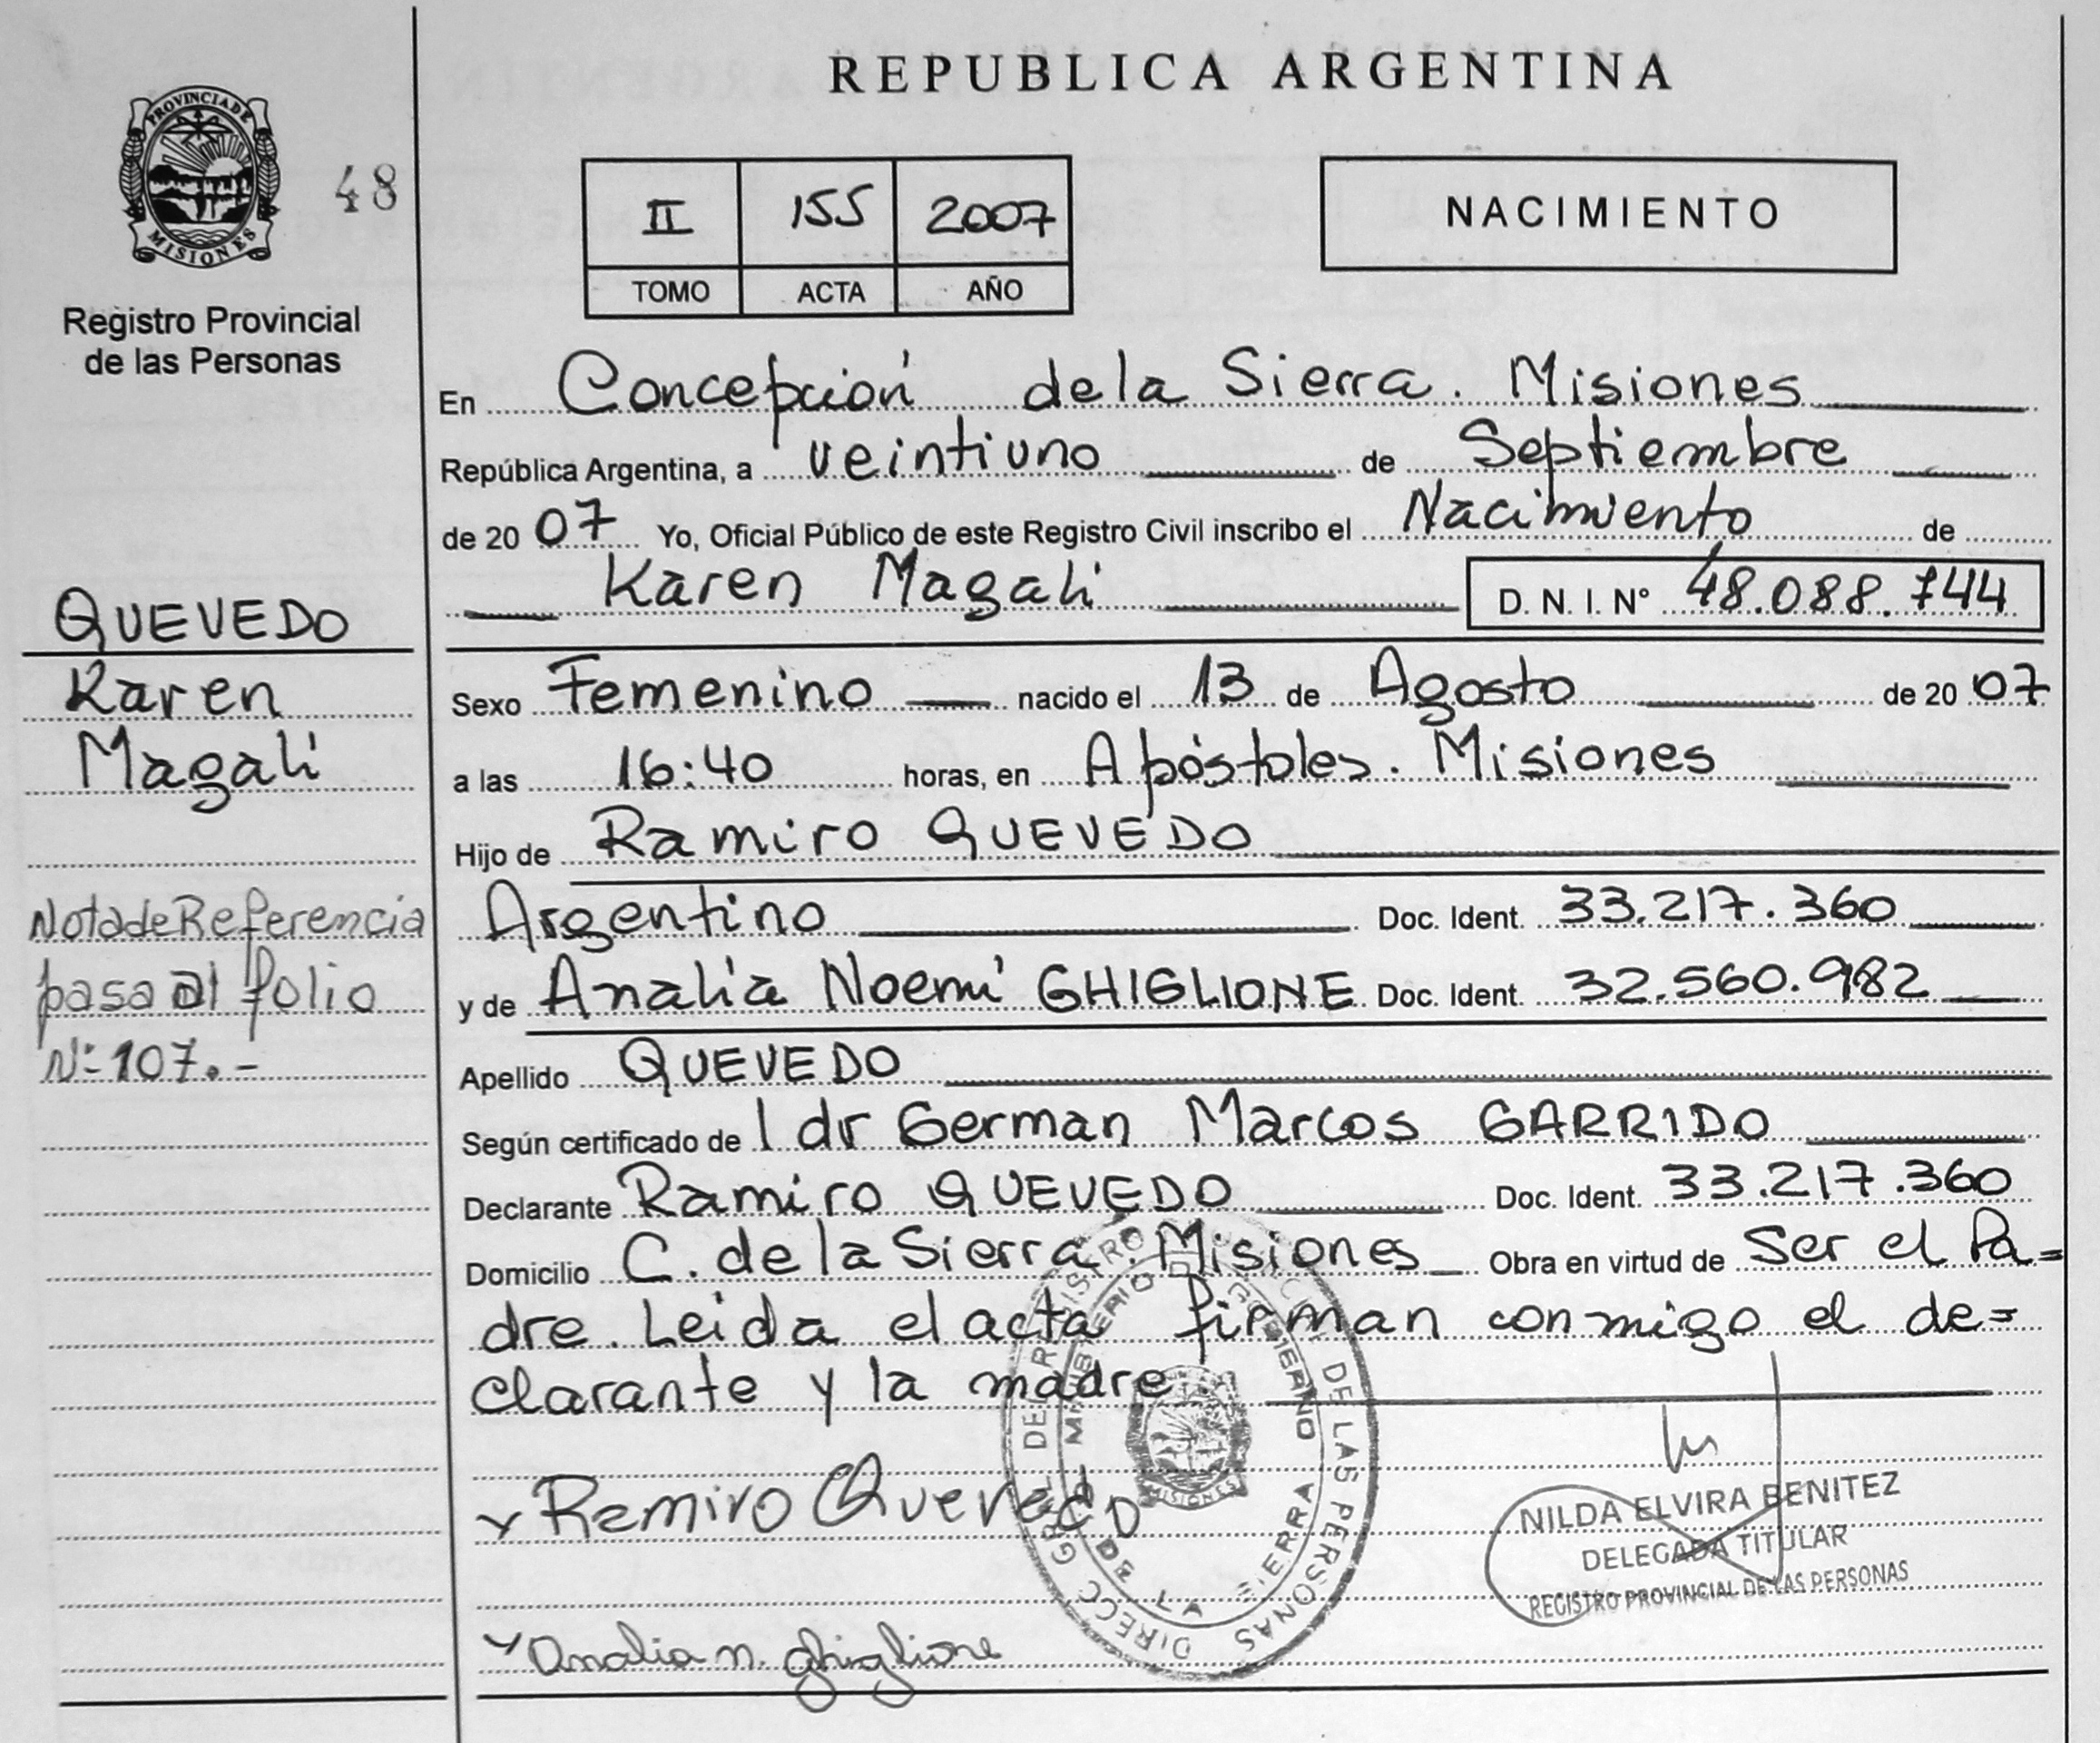 REPUBLICA ARGENTINA
PROVINCIA DE
MISIONES
48
Registro Provincial
de las Personas
II 155 2007
TOMO ACTA AÑO
NACIMIENTO
En Concepción de la Sierra. Misiones
República Argentina, a veintiuno de Septiembre
de 2007 Yo, Oficial Público de este Registro Civil inscribo el Nacimiento de
Karen Magalí D. N. I. N° 48.088.744
QUEVEDO
Karen
Magalí
Sexo Femenino nacido el 13 de Agosto de 2007
a las 16:40 horas, en Apóstoles. Misiones
Hijo de Ramiro QUEVEDO
Argentino Doc. Ident. 33.217.360
y de Analía Noemí GHIGLIONE Doc. Ident. 32.560.982
Nota de Referencia
pasa al folio
N: 107.-
Apellido QUEVEDO
Según certificado de l dr German Marcos GARRIDO
Declarante Ramiro QUEVEDO Doc. Ident. 33.217.360
Domicilio C. de la Sierra. Misiones Obra en virtud de Ser el Pa=
dre. Leida el acta firman conmigo el de=
clarante y la madre
Ramiro Quevedo
Analia n. ghiglione
NILDA ELVIRA BENITEZ
DELEGADA TITULAR
REGISTRO PROVINCIAL DE LAS PERSONAS
DIRECC GRAL DEL REGISTRO DE LAS PERSONAS
MISIONES
DE LA SIERRA